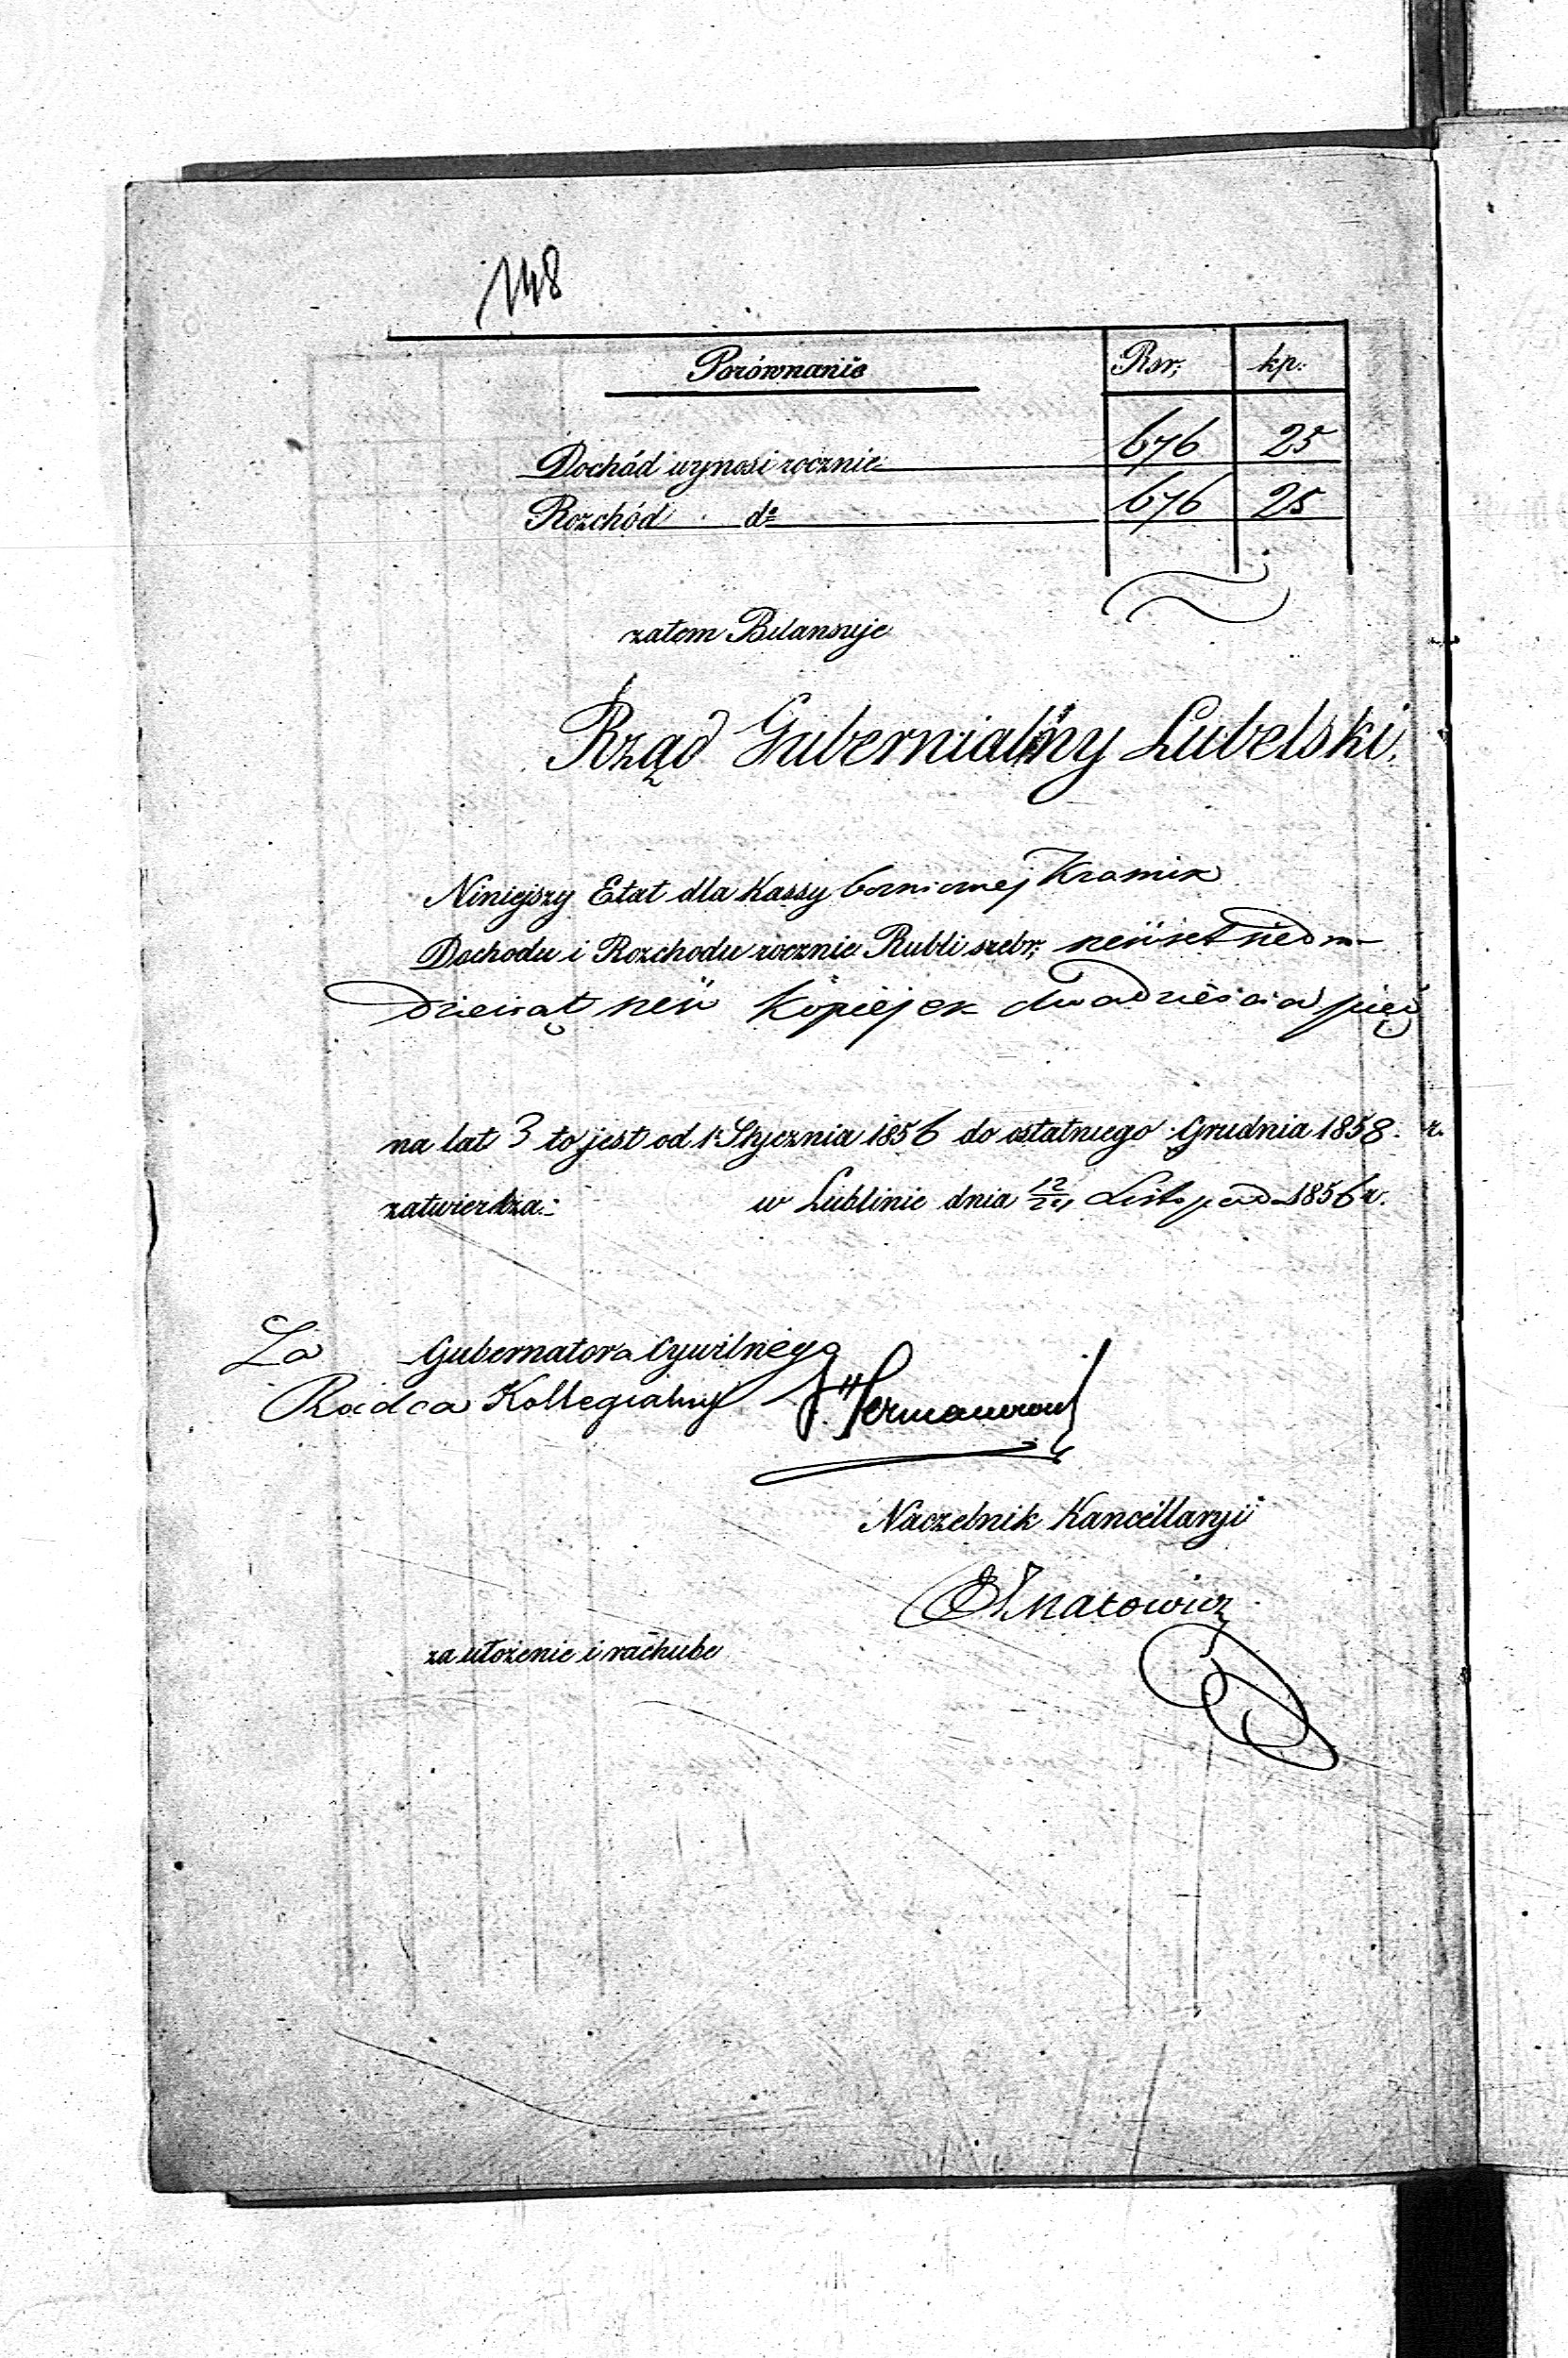 148
Porównanie Rsr: kp:
Dochód wynosi rocznie 676 25
Rozchód do 676 25
zatem Bilansuje
Rząd Gubernialny Lubelski.
Niniejszy Etat dla Kassy
Dochodu i Rozchodu rocznie Rubli srebr: sześćset siedm-
dziesiąt sześć Kopiejek dwadzieścia pięć
na lat 3 to jest od 1 Stycznia 1856 do ostatniego Grudnia 1858 r.
zatwierdza: w Lublinie dnia 12/24 Listopada 1856 r.
Za Gubernatora Cywilnego
Radca Kollegialny
Naczelnik Kancellaryi
za ułożenie i rachubę